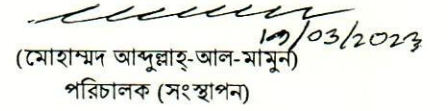 /03/2023
(মোহাম্মদ আব্দুল্লাহ্-আল-মামুন)
পরিচালক (সংস্থাপন)